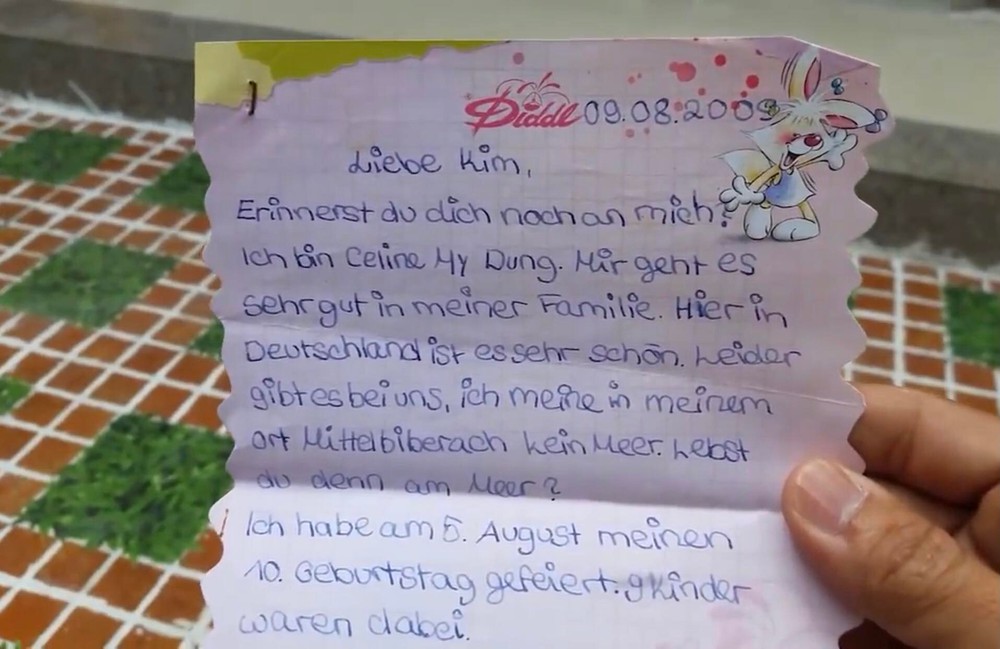 Diddl 09.08.2009
Liebe Kim,
Erinnerst du dich noch an mich?
Ich bin Celine My Dung. Mir geht es
sehr gut in meiner Familie. Hier in
Deutschland ist es sehr schön. Leider
gibt es bei uns, ich meine in meinem
Ort Mittelbiberach kein Meer. Lebst
du denn am Meer?
Ich habe am 5. August meinen
10. Geburtstag gefeiert. 9 Kinder
waren dabei.